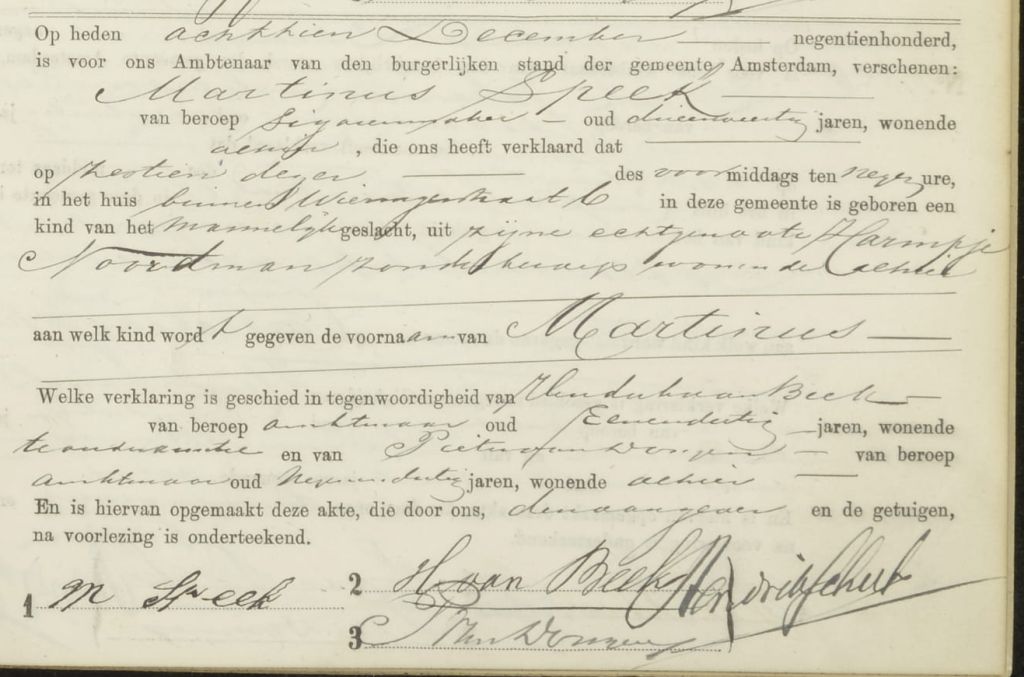 Op heden achttien December negentienhonderd,
is voor ons Ambtenaar van den burgerlijken stand der gemeente Amsterdam, verschenen:
Martinus Speek
van beroep Sigarenmaker oud drieenveertig jaren, wonende
alhier, die ons heeft verklaard dat
op zestien dezer des voormiddags ten negen ure,
in het huis binnen Wieringerstraat 6 in deze gemeente is geboren een
kind van het mannelijk geslacht, uit zijne echtgenoote Harmpje
Noordman zonder beroep wonende alhier
aan welk kind wordt gegeven de voornaam van Martinus
Welke verklaring is geschied in tegenwoordigheid van Hendrik van Beek
van beroep ambtenaar oud Eenendertig jaren, wonende
en van Pieter van Dongen van beroep
ambtenaar oud Negenendertig jaren, wonende alhier
En is hiervan opgemaakt deze akte, die door ons, den aangever en de getuigen,
na voorlezing is onderteekend.
1 M Speek 2 H van Beek
3 P van Dongen